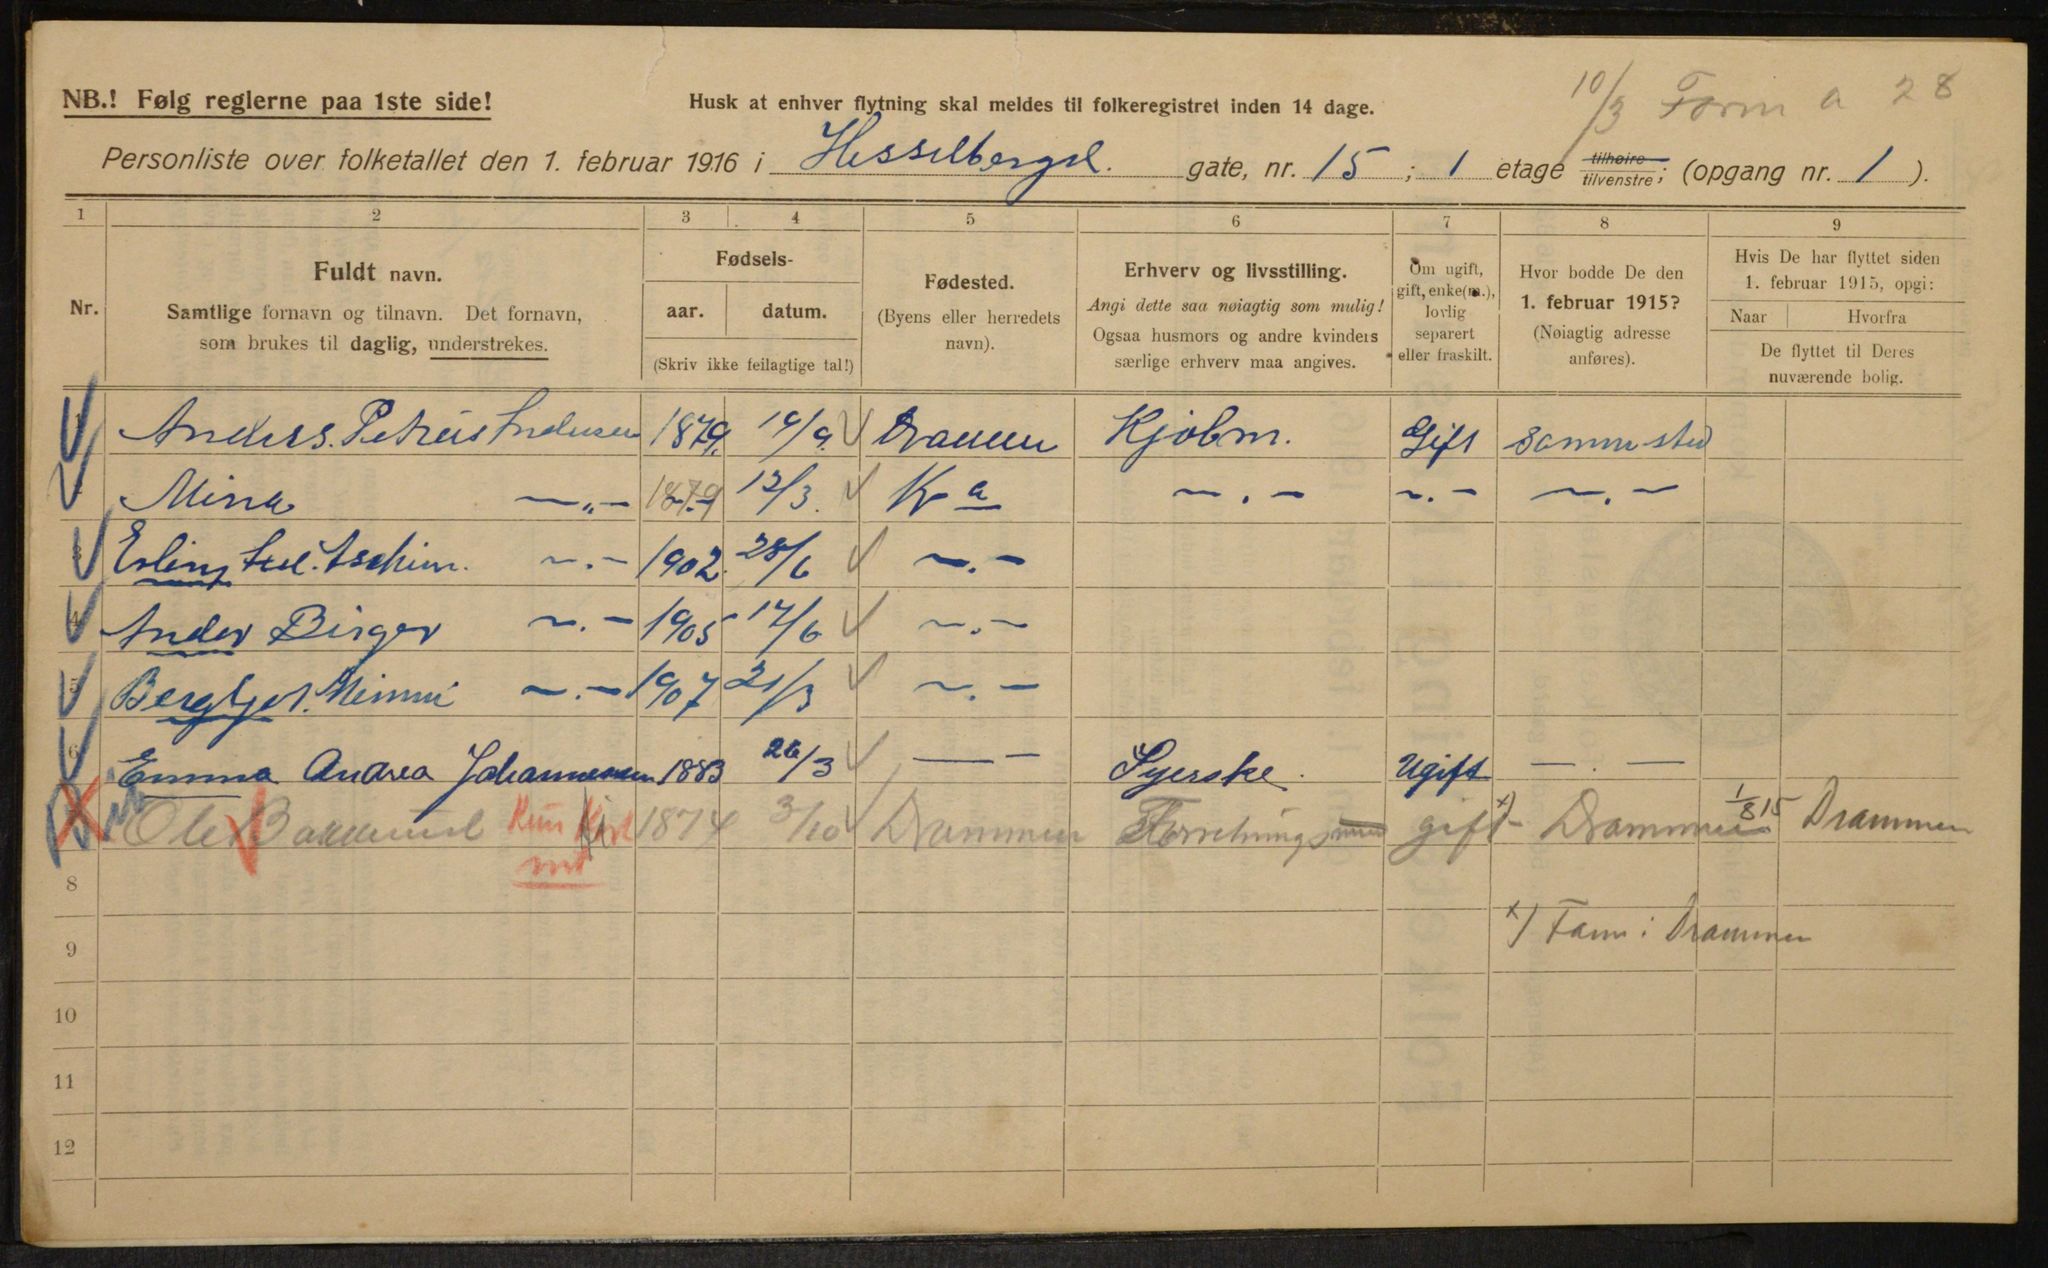 10/3 Form a 28
NB.! Følg reglerne paa 1ste side!
Husk at enhver flytning skal meldes til folkeregistret inden 14 dage.
Personliste over folketallet den 1. februar 1916 i Hesselbergs gate, nr. 15 ; 1 etage tilhøire tilvenstre; (opgang nr. 1 ).
1 2 3 4 5 6 7 8 9
Nr.
Fuldt navn.
Samtlige fornavn og tilnavn. Det fornavn,
som brukes til daglig, understrekes.
Fødsels-
aar. datum.
(Skriv ikke feilagtige tal!)
Fødested.
(Byens eller herredets
navn).
Erhverv og livsstilling.
Angi dette saa nøiagtig som mulig!
Ogsaa husmors og andre kvinders
særlige erhverv maa angives.
Om ugift,
gift, enke(m.),
lovlig
separert
eller fraskilt.
Hvor bodde De den
1. februar 1915?
(Nøiagtig adresse
anføres).
Hvis De har flyttet siden
1. februar 1915, opgi:
Naar Hvorfra
De flyttet til Deres
nuværende bolig.
Anders Petrus Andersen 1879. 19/9. Drammen Kjøbm. Gift Sammested
Mina —„— 1879 12/3. Kr a —.— —.— —.—
3 Erling —.— 1902. 28/6 —.—
4 Ander Birger —.— 1905 17/6 —.—
5 Bergljot. Mimmi —.— 1907 21/3 —.—
6 Emma Andrea Johannesen 1883 26/3 —— Syerske. Ugift —.—
Ole 1874 3/10 Drammen Forretningsmand gift x) Drammen 1/8 15 Drammen
8
x) Fam i Drammen
9
10
11
12